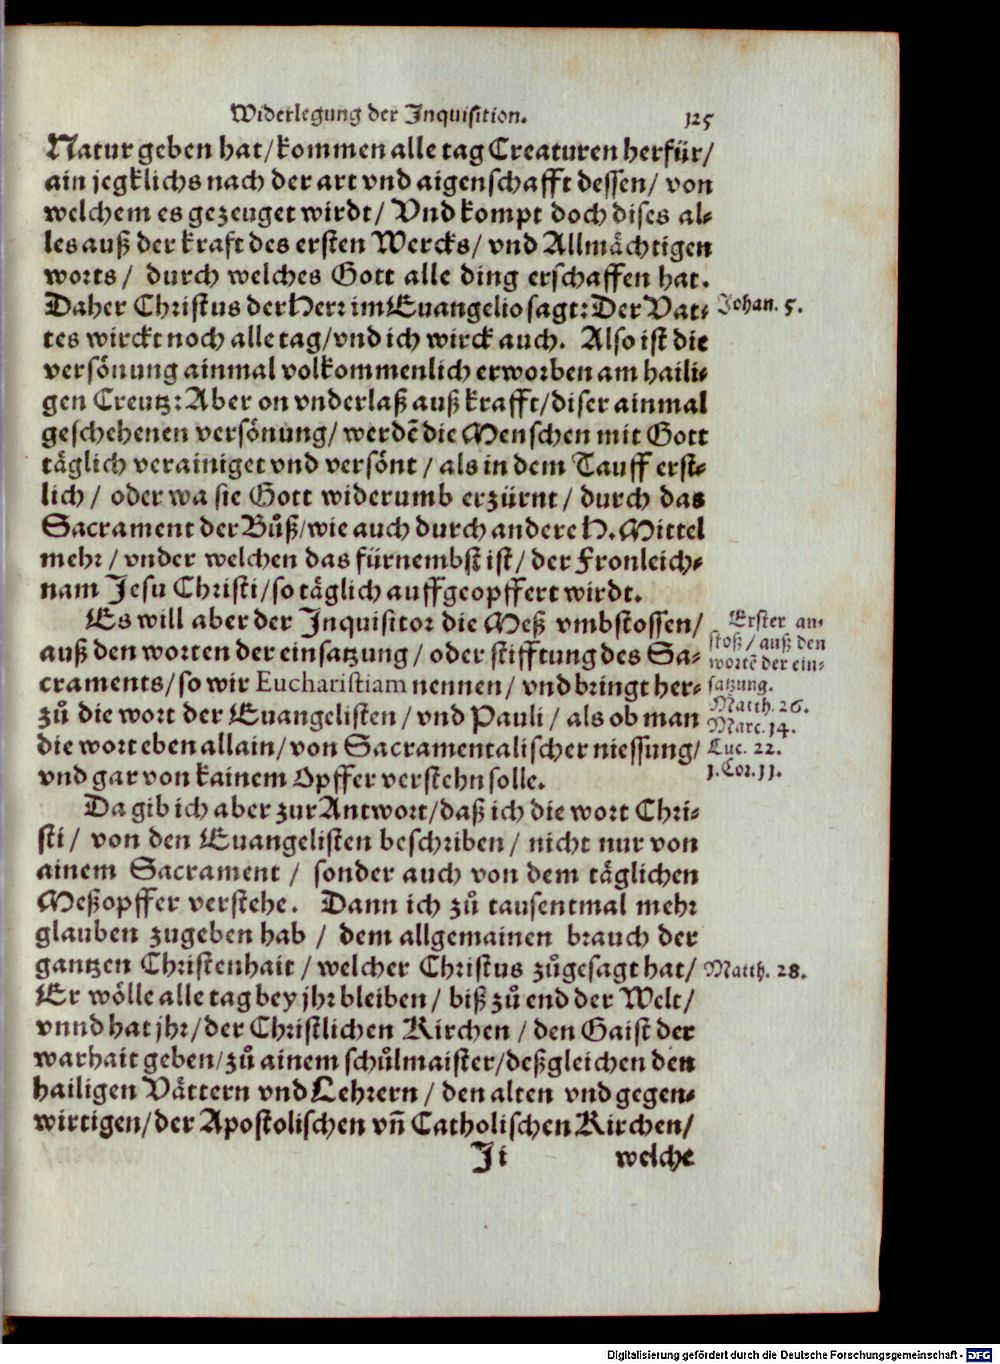 Widerlegung der Inquisition. 125
Natur geben hat/ kommen alle tag Creaturen herfür/
ain jegklichs nach der art vnd aigenschafft dessen/ von
welchem es gezeuget wirdt/ Vnd kompt doch dises al-
les auß der kraft des ersten Wercks/ vnd Allmächtigen
worts/ durch welches Gott alle ding erschaffen hat.
Daher Christus der Herr im Euangelio sagt: Der Vat- Johan. 5.
tes wirckt noch alle tag/ vnd ich wirck auch. Also ist die
versönung ainmal volkommenlich erworben am haili-
gen Creutz: Aber on vnderlaß auß krafft/ diser ainmal
geschehenen versönung/ werdẽ die Menschen mit Gott
täglich verainiget vnd versönt / als in dem Tauff erst-
lich / oder wa sie Gott widerumb erzürnt / durch das
Sacrament der Bůß/ wie auch durch andere H. Mittel
mehr / vnder welchen das fürnembst ist / der Fronleich-
nam Jesu Christi/ so täglich auffgeopffert wirdt.
Es will aber der Inquisitor die Meß vmbstossen/
auß den worten der einsatzung / oder stifftung des Sa-
craments/ so wir Eucharistiam nennen / vnd bringt her-
zů die wort der Euangelisten / vnd Pauli / als ob man
die wort eben allain/ von Sacramentalischer niessung/
vnd gar von kainem Opffer verstehn solle.
Erster an-
stoß / auß den
wortẽ der ein-
satzung.
Matth. 26.
Marc. 14.
Luc. 22.
1. Cor. 11.
Da gib ich aber zur Antwort/ daß ich die wort Chri-
sti / von den Euangelisten beschriben / nicht nur von
ainem Sacrament / sonder auch von dem täglichen
Meßopffer verstehe. Dann ich zů tausentmal mehr
glauben zugeben hab / dem allgemainen brauch der
gantzen Christenhait / welcher Christus zůgesagt hat/ Matth. 28.
Er wölle alle tag bey jhr bleiben / biß zů end der Welt/
vnnd hat jhr/ der Christlichen Kirchen / den Gaist der
warhait geben/ zů ainem schůlmaister/ deßgleichen den
hailigen Vättern vnd Lehrern / den alten vnd gegen-
wirtigen/ der Apostolischen vñ Catholischen Kirchen/
Ji welche
Digitalisierung gefördert durch die Deutsche Forschungsgemeinschaft - DFG